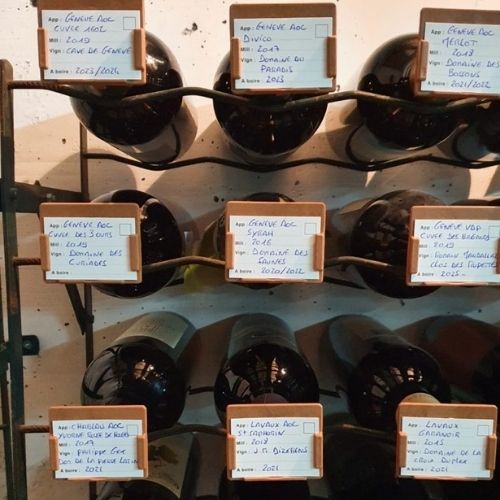 App : GENÈVE AOC
CUVÉE 1602
Mill : 2019
Vign : CAVE DE GENÈVE
A boire : 2023/2024
App : GENÈVE AOC
DIVICO
Mill : 2017
Vign : DOMAINE DU
PARADIS
A boire : 2023
App : GENÈVE AOC
MERLOT
Mill : 2018
Vign : DOMAINE DES
BOSSONS
A boire : 2021/2022
App : GENÈVE AOC
CUVÉE DES 3 OURS
Mill : 2019
Vign : DOMAINE DES
CURIADES
A boire :
App : GENÈVE AOC
SYRAH
Mill : 2016
Vign : DOMAINE DES
A boire : 2020/2022
App : GENÈVE VDP
CUVÉE DES
Mill : 2019
Vign :
CLOS DES
A boire : 2025 -
App : CHABLAIS AOC
YVORNE
Mill : 2017
Vign : PHILIPPE GEX
DOM. DE LA PIERRE LATINE
A boire : 2021
App : LAVAUX AOC
ST SAPHORIN
Mill : 2018
Vign : J.M.
A boire : 2021
App : LAVAUX
GARANOIR
Mill : 2015
Vign : DOMAINE DE LA
CROIX DUPLEX
A boire : 2021